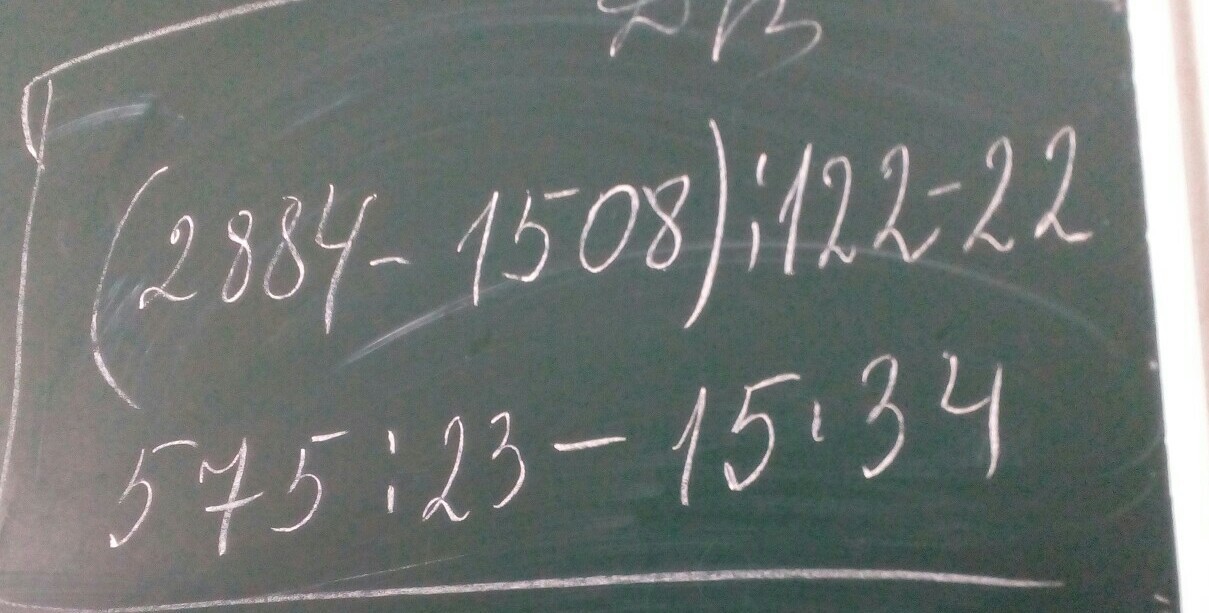 (2884 - 1508) : 122 - 22
575 : 23 - 15 · 34